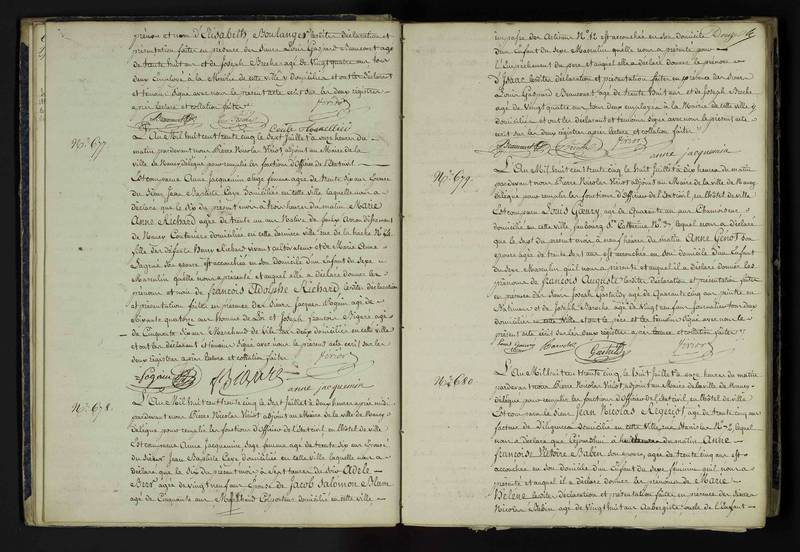 prénom et nom d'Elisabeth Boulanger lesdites déclaration et
présentation faites en présence des Sieurs Louis Gaspard Beaumont agé
de trente huit ans et de Joseph Bechet agé de vingt quatre ans tous
deux Employés à la Mairie de cette ville y domiciliés et ont les déclarant
et témoins signé avec nous le présent acte écrit sur les deux registres
après lecture et collation faites
Viriot
Beaumont
Cécile Thouvellier
N.° 677.
L'An Mil huit cent trente cinq le sept Juillet à onze heures du
matin pardevant nous Pierre Nicolas Viriot adjoint au Maire de la
ville de Nancy délégué pour remplir les fonctions d'Officier de l'Etat civil
Est comparue Anne Jacquemin sage femme agée de trente six ans Epouse
du Sieur Jean Baptiste Caye domiciliée en cette ville laquelle nous a
déclaré que le six du présent mois à trois heures du matin Marie
Anne Richard agée de trente un ans Native de
de Nancy Couturière domiciliée en cette dernière ville rue de la hache N.°
fille des défunts Henry Richard vivant cultivateur et de Marie Anne
Lagrue son épouse est accouchée en son domicile d'un Enfant du sexe
Masculin qu'elle nous a présenté et auquel elle a déclaré donner les
prénoms et nom de François Adolphe Richard lesdites déclaration
et présentation faites en présence des Sieurs Jacques Mogin agé de
soixante quatorze ans homme de Loi et Joseph François Nigere agé
de Cinquante six ans Marchand de vin tous deux domiciliés en cette ville
et ont les déclarant et témoins signé avec nous le présent acte écrit sur les
deux registres après lecture et collation faites
Viriot
anne jacquemin
N.° 678.
L'An Mil huit cent trente cinq le sept Juillet à deux heures après midi
pardevant nous Pierre Nicolas Viriot adjoint au Maire de la ville de Nancy
délégué pour remplir les fonctions d'Officier de l'Etat civil en l'hôtel de ville
Est comparue Anne Jacquemin Sage femme agée de trente six ans Epouse
du Sieur Jean Baptiste Caye domiciliée en cette ville laquelle nous a
déclaré que le six du présent mois à sept heures du soir Adèle
agée de vingt neuf ans Epouse de Jacob Salomon Blum
agé de Cinquante ans Marchand Colporteur domicilié en cette ville
impasse des Artisans N.° 12 est accouchée en son domicile
d'un Enfant du sexe Masculin qu'elle nous a présenté pour
l'Empêchement du père et auquel elle a déclaré donner le prénom
d'Isaac lesdites déclaration et présentation faites en présence des Sieurs
Louis Gaspard Beaumont agé de trente huit ans et de Joseph Bechet
agé de vingt quatre ans tous deux employés à la Mairie de cette ville y
domiciliés et ont les déclarant et témoins signé avec nous le présent acte
écrit sur les deux registres après lecture et collation faites
Viriot
Beaumont
anne jacquemin
N.° 679.
L'An Mil huit cent trente cinq le huit Juillet à dix heures du matin
pardevant nous Pierre Nicolas Viriot adjoint au Maire de la ville de Nancy
délégué pour remplir les fonctions d'Officier de l'Etat civil en l'hôtel de ville
Est comparu Louis Goury agé de Quarante ans Chamoiseur
domicilié en cette ville, faubourg S.te Catherine N.° lequel nous a déclaré
que le sept du présent mois à neuf heures du matin Anne Génot son
épouse agée de trente sept ans est accouchée en son domicile d'un Enfant
du sexe Masculin qu'il nous a présenté et auquel il a déclaré donner les
prénoms de François Auguste lesdites déclaration et présentation faites
en présence des Sieurs Joseph Gastaldy agé de Quarante cinq ans peintre en
Miniature et de Joseph agé de vingt un ans tous deux
domiciliés en cette ville et ont le père et les témoins signé avec nous le
présent acte écrit sur les deux registres après lecture et collation faites
Louis Goury
Gastaldy
Viriot
N.° 680.
L'An Mil huit cent trente cinq le huit Juillet à onze heures du matin
pardevant nous Pierre Nicolas Viriot adjoint au Maire de la ville de Nancy
délégué pour remplir les fonctions d'Officier de l'Etat civil en l'hôtel de ville
Est comparu le Sieur Jean Nicolas agé de trente cinq ans
facteur de Diligences domicilié en cette ville rue Stanislas N.° lequel
nous a déclaré que cejourd'hui à heures du matin Anne
Françoise Victoire Babin son épouse, agée de trente cinq ans est
accouchée en son domicile d'un Enfant du sexe féminin qu'il nous a
présenté et auquel il a déclaré donner les prénoms de Marie
Hélène lesdites déclaration et présentation faites en présence des Sieurs
Nicolas Babin agé de vingt huit ans Aubergiste oncle de l'Enfant